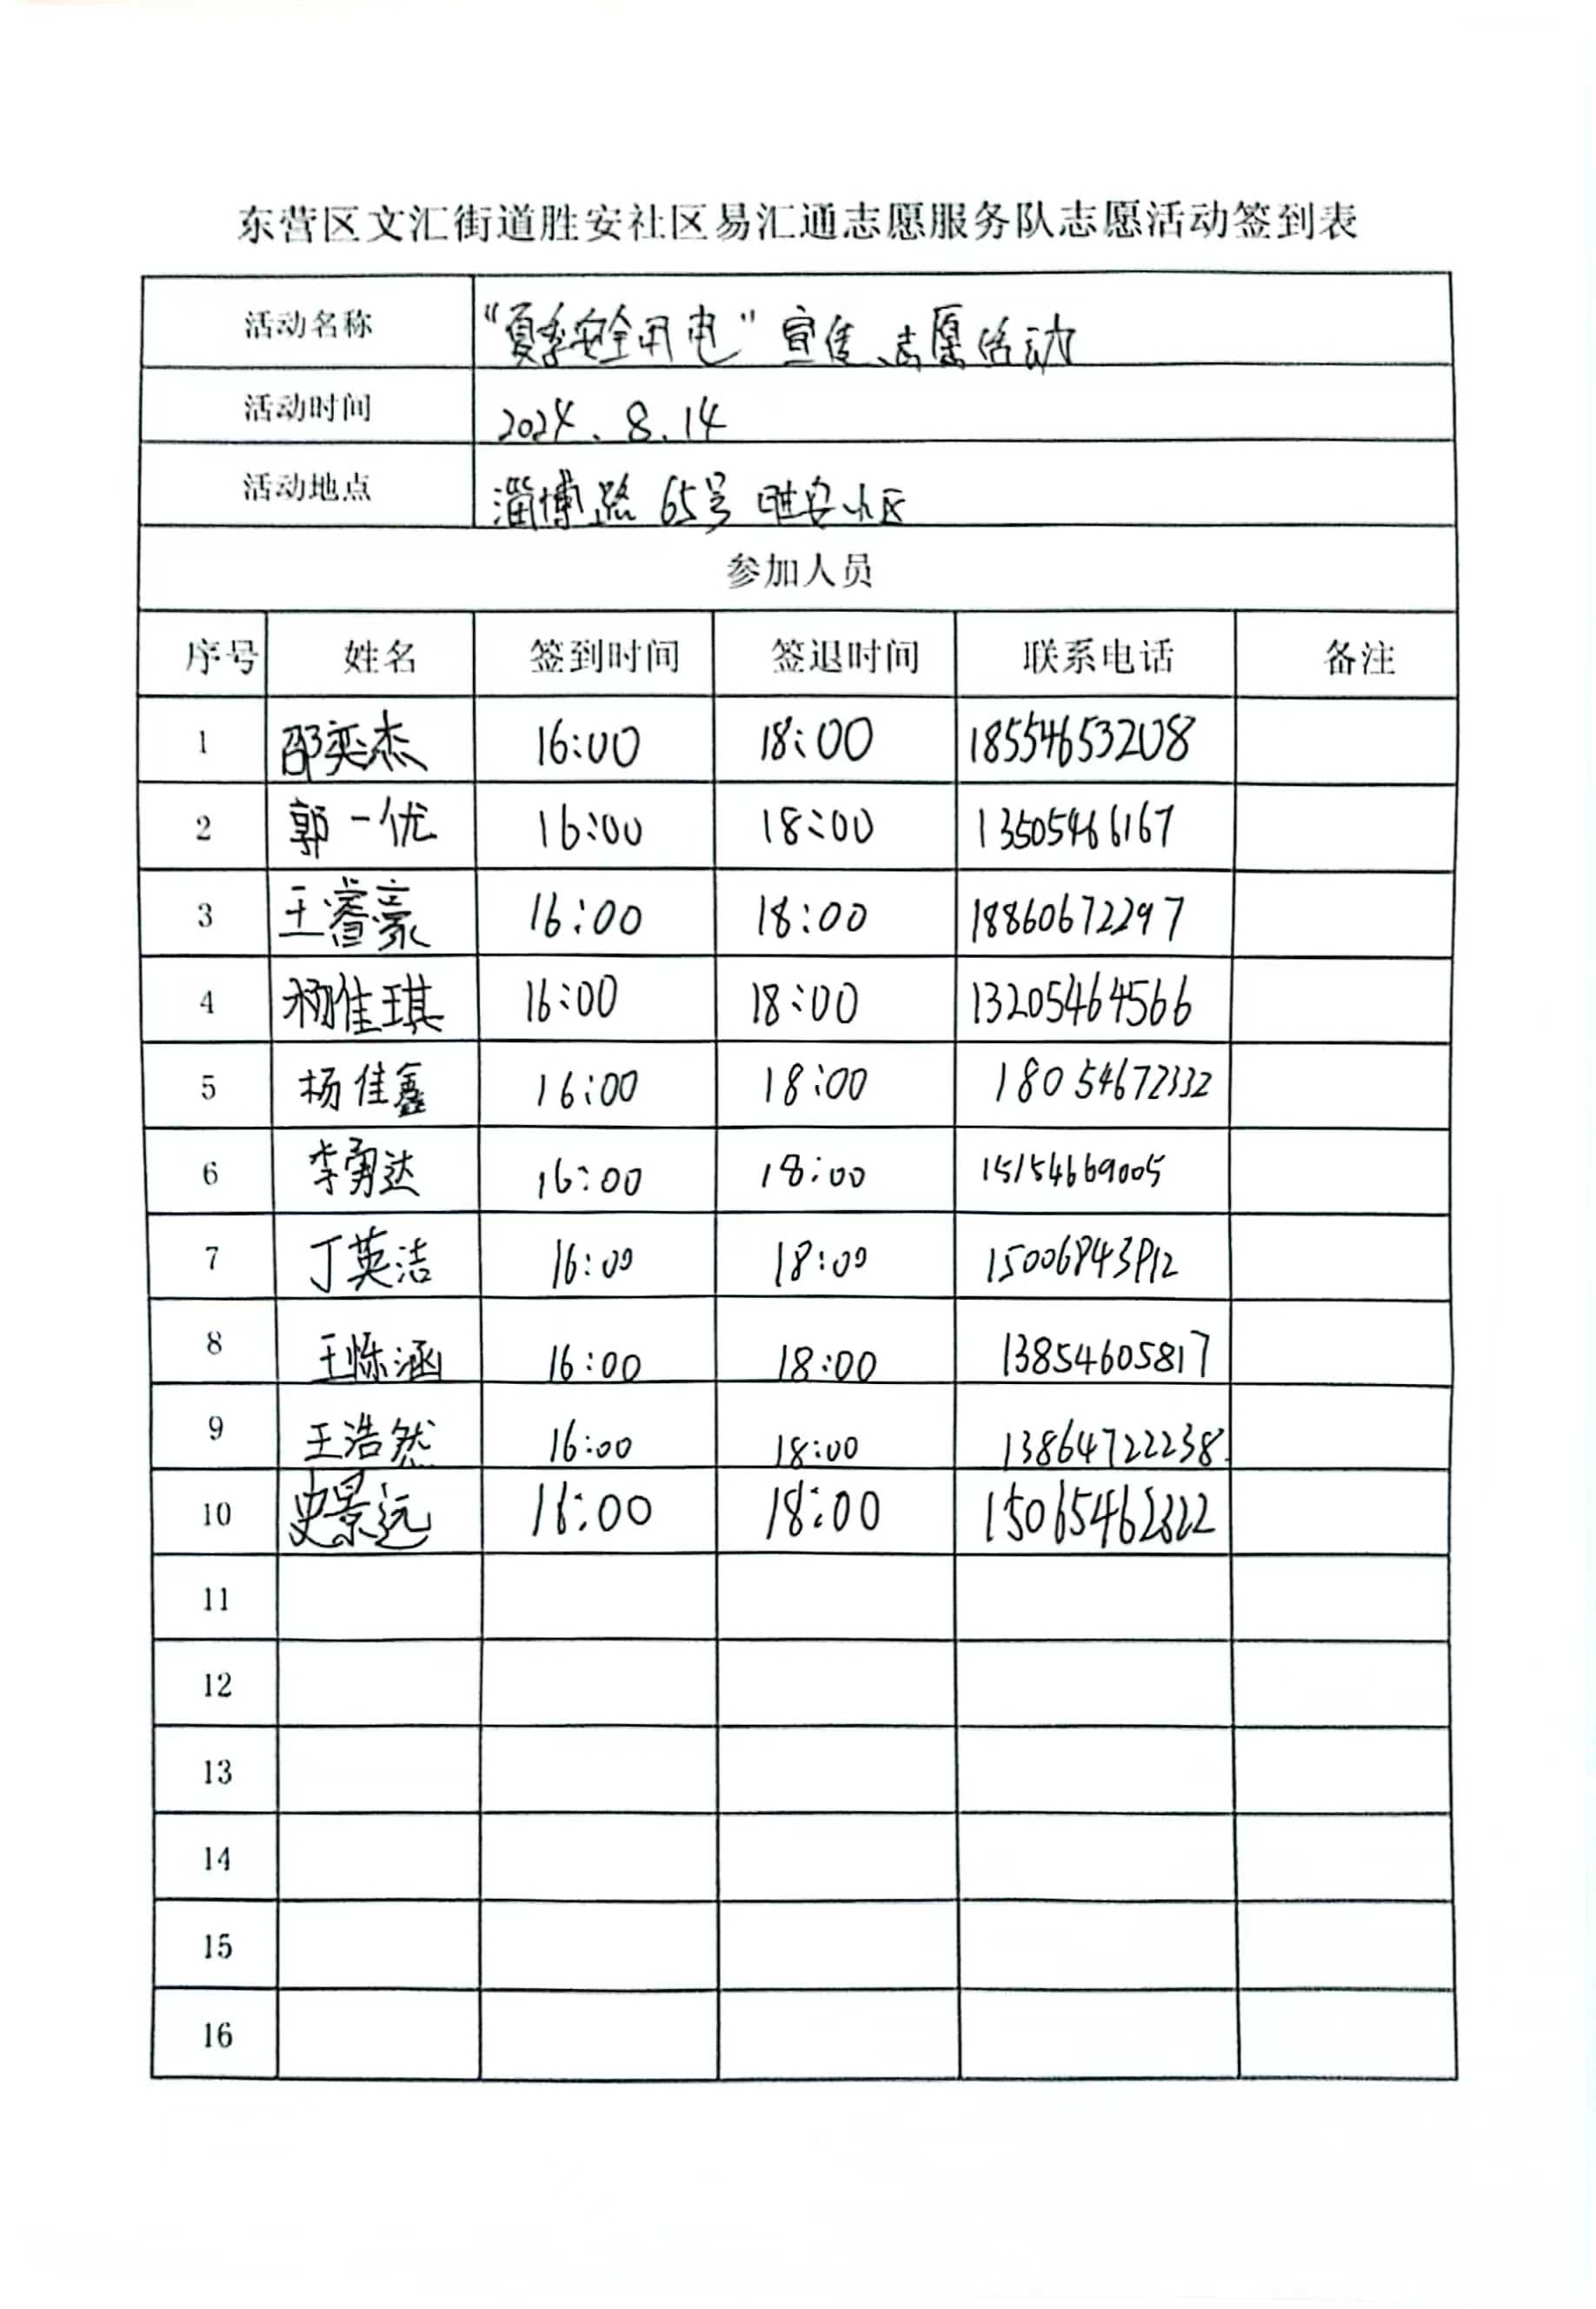 东营区文汇街道胜安社区易汇通志愿服务队志愿活动签到表
活动名称 “夏季安全用电”宣传志愿活动
活动时间 2024.8.14
活动地点 淄博路65号胜安小区
参加人员
序号 姓名 签到时间 签退时间 联系电话 备注
1 邵奕杰 16:00 18:00 18554653208
2 郭一优 16:00 18:00 13505466167
3 王睿豪 16:00 18:00 18860672297
4 杨佳琪 16:00 18:00 13205464566
5 杨佳鑫 16:00 18:00 18054672332
6 李勇达 16:00 18:00 15154669005
7 丁英洁 16:00 18:00
8 王烁涵 16:00 18:00 13854605817
9 王浩然 16:00 18:00 13864722238
10 史景远 16:00 18:00
11
12
13
14
15
16